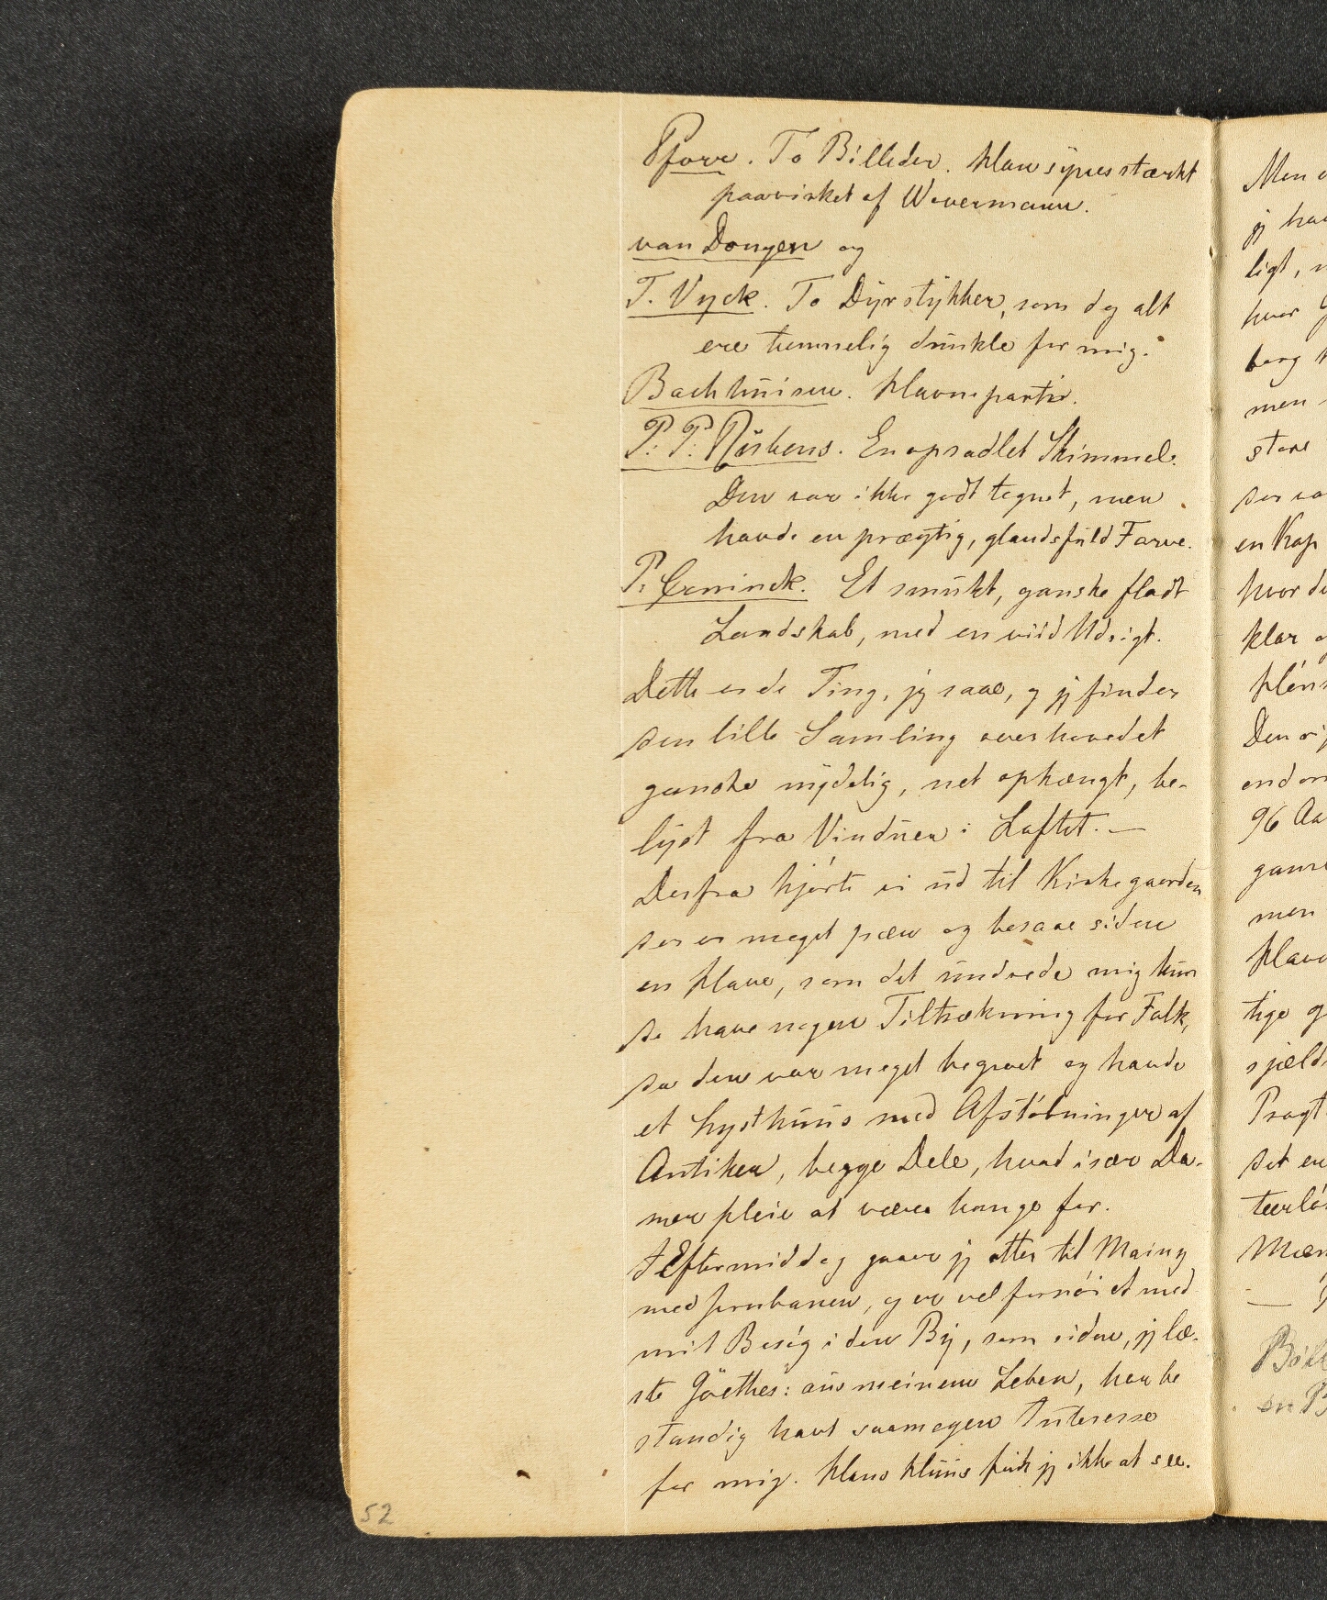 Pforr. To Billeder. Han synes stærkt
paavirket af Wovermann.
van Dongen og
T. Vyck. To Dyrstykker, som dog alt
ere temmelig dunkle for mig.
Bachhuisen. Havneparti.
P. P. Rubens. En opsadlet Skimmel.
Den var ikke godt tegnet, men
havde en prægtig, glandsfuld Farve.
P. Geminck. Et smukt, ganske fladt
Landskab, med en viid Udsigt.
Dette er de Ting, jeg saae, og jeg finder
den lille Samling overhovedet
ganske nydelig, net ophængt, be-
lyst fra Vinduer i Loftet. —
Derfra kjørte vi ud til Kirkegaarden
der er meget pæn og besaae siden
en Have, som det undrede mig kun-
de have nogen Tiltrækning for Folk,
da den var meget begroet og havde
et Lysthuus med Afstøbninger af
Antiker, begge Dele, hvad især Da-
mer pleie at være bange for.
I Eftermiddag gaaer jeg atter til Mainz
med Jernbanen, og er vel fornøiet med
mit Besøg i den By, som siden, jeg læ-
ste Göethes: aus meinem Leben, har be
standig havt saamegen Interesse
for mig. Hans Huus fik jeg ikke at see.
52
Men
jeg
ligt,
hvor
berg
men
store
der
en Kop
hvor
klar
Den
96 Aa
men
Have
tige
sjæld
Pragt
det en
Mæn